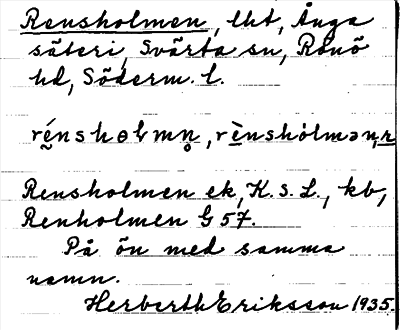 Rensholmen, lht, Ånga
säteri, Svärta sn, Rönö
hd, Söderm. l.
rénshɵlmn̥, rènshòlmən, n
Rensholmen ek, K.s.L., kb,
Renholmen G 57.
På ön med samma
namn.
Herberth Eriksson 1935.